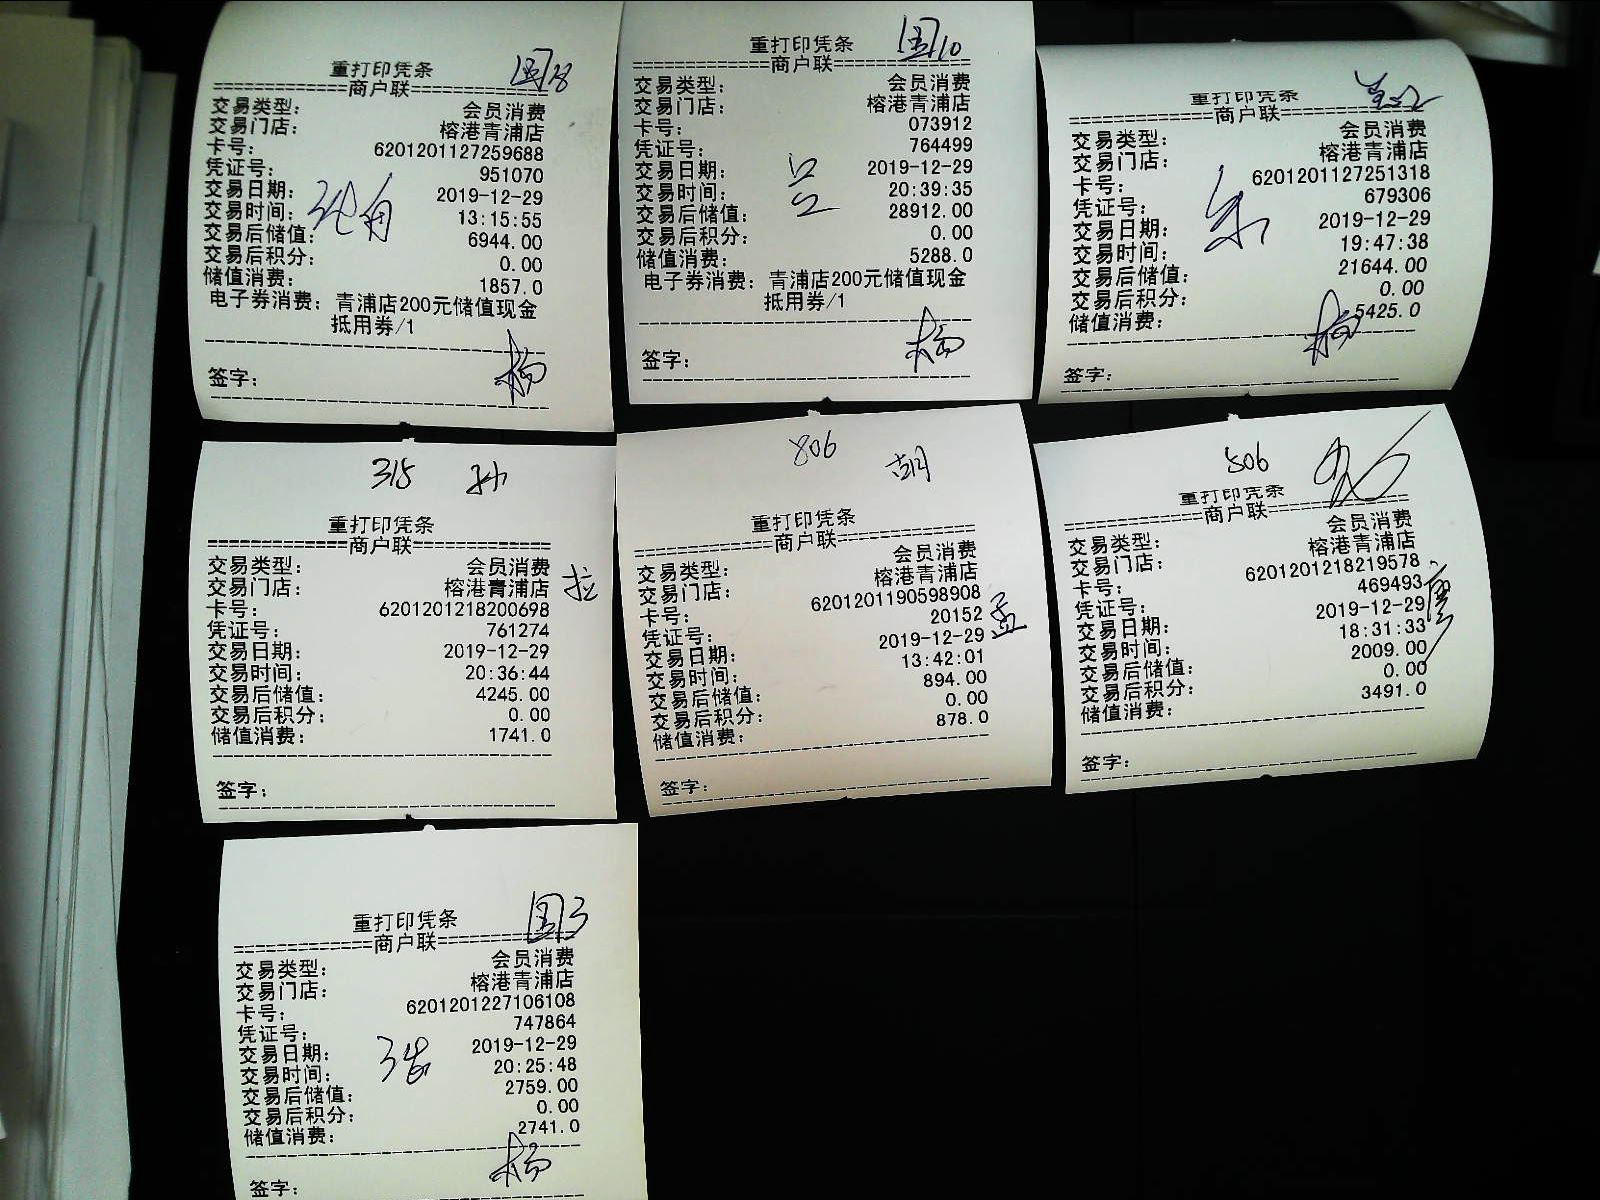 国8
重打印凭条
============商户联============
交易类型: 会员消费
交易门店: 榕港青浦店
卡号: 6201201127259688
凭证号: 951070
交易日期: 2019-12-29
交易时间: 13:15:55
交易后储值: 6944.00
交易后积分: 0.00
储值消费: 1857.0
电子券消费: 青浦店200元储值现金
抵用券/1
杨
签字:
国10
重打印凭条
============商户联============
交易类型: 会员消费
交易门店: 榕港青浦店
卡号: 073912
凭证号: 764499
交易日期: 2019-12-29
交易时间: 20:39:35
交易后储值: 28912.00
交易后积分: 0.00
储值消费: 5288.0
电子券消费: 青浦店200元储值现金
抵用券/1
吕
杨
签字:
重打印凭条
============商户联============
交易类型: 会员消费
交易门店: 榕港青浦店
卡号: 6201201127251318
凭证号: 679306
交易日期: 2019-12-29
交易时间: 19:47:38
交易后储值: 21644.00
交易后积分: 0.00
储值消费: 5425.0
朱
杨
签字:
315 孙
重打印凭条
============商户联============
交易类型: 会员消费
交易门店: 榕港青浦店
卡号: 6201201218200698
凭证号: 761274
交易日期: 2019-12-29
交易时间: 20:36:44
交易后储值: 4245.00
交易后积分: 0.00
储值消费: 1741.0
签字:
806 胡
重打印凭条
============商户联============
交易类型: 会员消费
交易门店: 榕港青浦店
卡号: 6201201190598908
凭证号: 20152
孟
交易日期: 2019-12-29
交易时间: 13:42:01
交易后储值: 894.00
交易后积分: 0.00
储值消费: 878.0
签字:
806
重打印凭条
============商户联============
交易类型: 会员消费
交易门店: 榕港青浦店
卡号: 6201201218219578
凭证号: 469493
交易日期: 2019-12-29
交易时间: 18:31:33
交易后储值: 2009.00
交易后积分: 0.00
储值消费: 3491.0
签字:
国3
重打印凭条
============商户联============
交易类型: 会员消费
交易门店: 榕港青浦店
卡号: 6201201227106108
凭证号: 747864
交易日期: 2019-12-29
交易时间: 20:25:48
交易后储值: 2759.00
交易后积分: 0.00
储值消费: 2741.0
杨
签字: